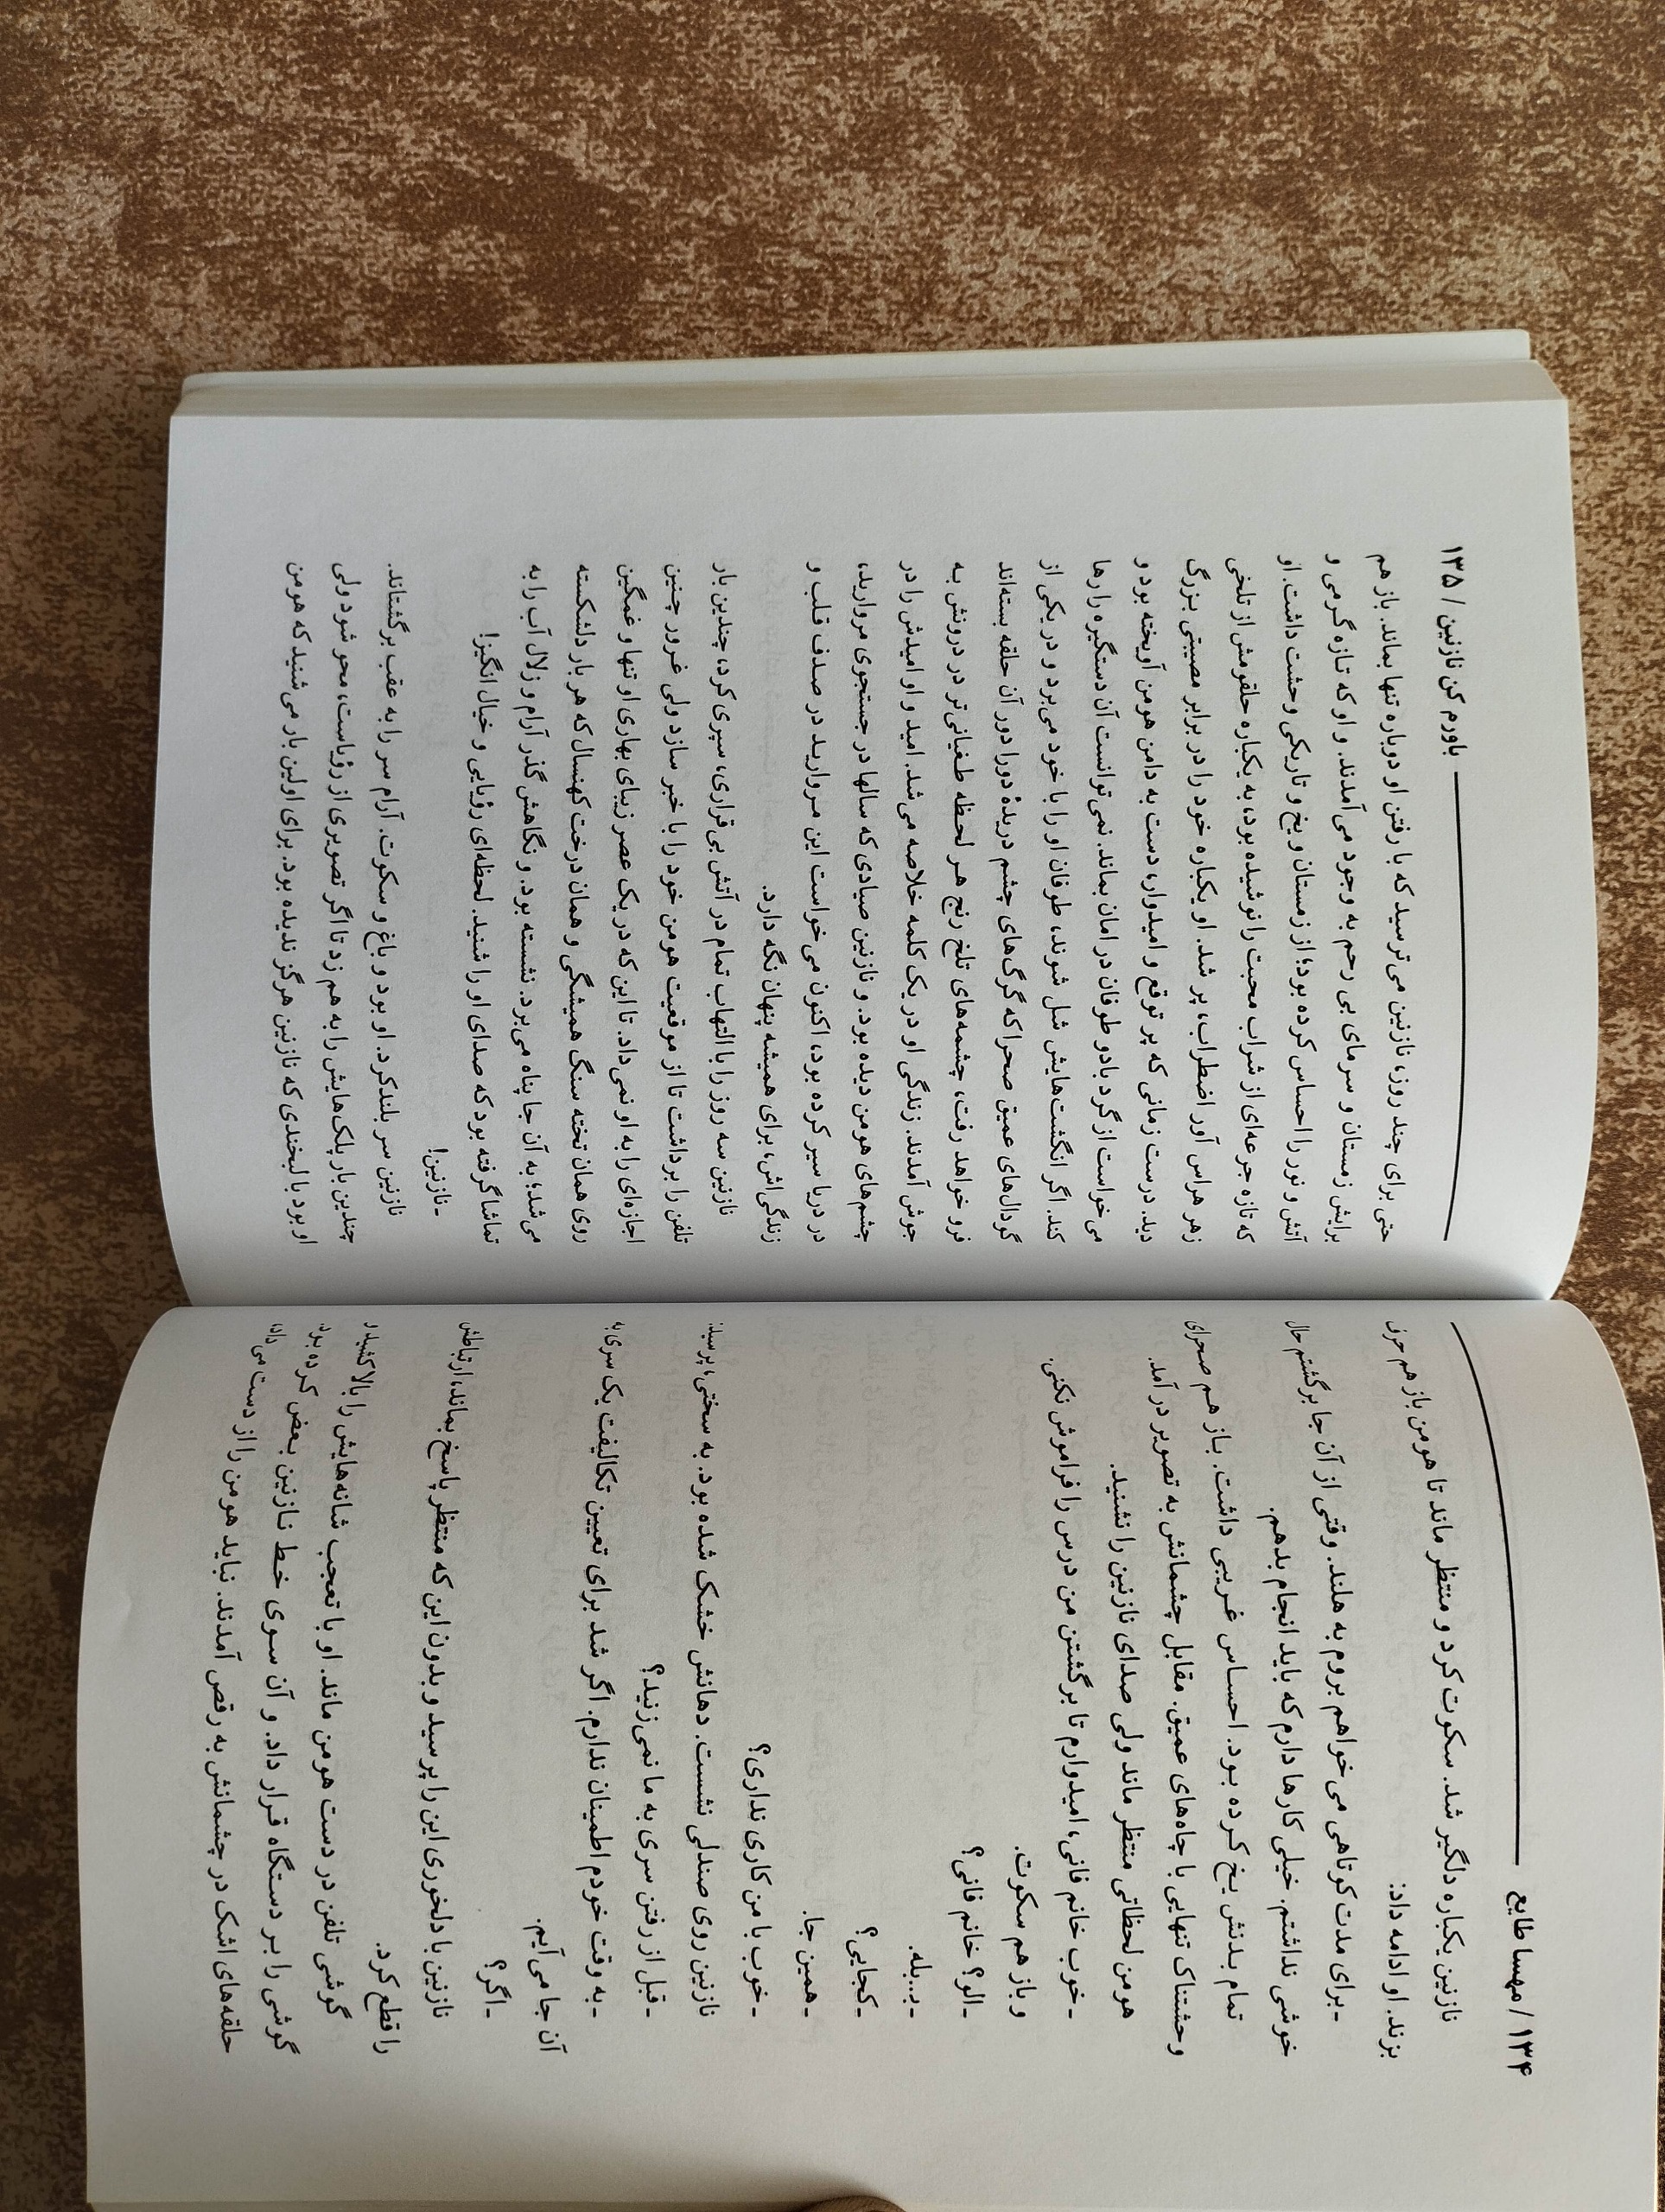 ۱۳۴ / مهسا طایع
نازنین یکباره دلگیر شد. سکوت کرد و منتظر ماند تا هومن باز هم حرف
بزند. او ادامه داد:
ـ برای مدت کوتاهی می‌خواهم بروم به هلند. وقتی از آن جا برگشتم حال
خوشی نداشتم. خیلی کارها دارم که باید انجام بدهم.
تمام بدنش یخ کرده بود. احساس غریبی داشت. باز هم صحرای
وحشتناک تنهایی با چاه‌های عمیق. مقابل چشمانش به تصویر در آمد.
هومن لحظاتی منتظر ماند ولی صدای نازنین را نشنید.
ـ خوب خانم فانی، امیدوارم تا برگشتن من درس را فراموش نکنی.
و باز هم سکوت.
ـ الو؟ خانم فانی؟
ـ ب...بله.
ـ کجایی؟
ـ همین جا.
ـ خوب با من کاری نداری؟
نازنین روی صندلی نشست. دهانش خشک شده بود. به سختی پرسید:
ـ قبل از رفتن سری به ما نمی‌زنید؟
ـ به وقت خودم اطمینان ندارم. اگر شد برای تعیین تکالیفت یک سری به
آن جا می‌آیم.
ـ اگر؟
نازنین با دلخوری این را پرسید و بدون این که منتظر پاسخ بماند، ارتباطش
را قطع کرد.
گوشی تلفن در دست هومن ماند. او با تعجب شانه‌هایش را بالا کشید و
گوشی را بر دستگاه قرار داد. و آن سوی خط نازنین بغض کرده بود.
حلقه‌های اشک در چشمانش به رقص آمدند. نباید هومن را از دست می‌داد،
باورم کن نازنین / ۱۳۵
حتی برای چند روز، نازنین می‌ترسید که با رفتن او دوباره تنها بماند. باز هم
برایش زمستان و سرمای بی رحم به وجود می‌آمدند. و او که تازه گرمی و
آتش و نور را احساس کرده بود؛ از زمستان و یخ و تاریکی وحشت داشت. او
که تازه جرعه‌ای از شراب محبت را نوشیده بود، به یکباره حلقومش از تلخی
زهر هراس آور اضطراب، پر شد. او یکباره خود را در برابر مصیبتی بزرگ
دید. درست زمانی که پر توقع و امیدوار، دست به دامن هومن آویخته بود و
می‌خواست از گرد بادو طوفان در امان بماند. نمی‌توانست آن دستگیره را رها
کند. اگر انگشت‌هایش شل شوند، طوفان او را با خود می‌برد و در یکی از
گودال‌های عمیق صحرا که گرگ‌های چشم دریدهٔ دورا دور آن حلقه بسته‌اند
فرو خواهد رفت، چشمه‌های تلخ رنج هر لحظه طغیانی تر در درونش به
جوش آمدند. زندگی او در یک کلمه خلاصه می‌شد. امید و او امیدش را در
چشم‌های هومن دیده بود. و نازنین صیادی که سالها در جستجوی مروارید،
در دریا سیر کرده بود، اکنون می‌خواست این مروارید در صدف قلب و
زندگی‌اش، برای همیشه پنهان نگه دارد.
نازنین سه روز را با التهاب تمام در آتش بی قراری، سپری کرد، چندین بار
تلفن را برداشت تا از موقعیت هومن خود را با خبر سازد ولی غرور چنین
اجازه‌ای را به او نمی‌داد. تا این که در یک عصر زیبای بهاری او تنها و غمگین
روی همان تخته سنگ همیشگی و همان درخت کهنسال که هر بار دلشکسته
می‌شد؛ به آن جا پناه می‌برد. نشسته بود. و نگاهش گذر آرام و زلال آب را به
تماشا گرفته بود که صدای او را شنید. لحظه‌ای رؤیایی و خیال انگیز!
ـ نازنین!
نازنین سر بلند کرد. او بود و باغ و سکوت. آرام سر را به عقب برگشتاند.
چندین بار پلک‌هایش را به هم زد تا اگر تصویری از رؤیاست، محو شود ولی
او بود با لبخندی که نازنین هرگز ندیده بود. برای اولین بار می‌شنید که هومن